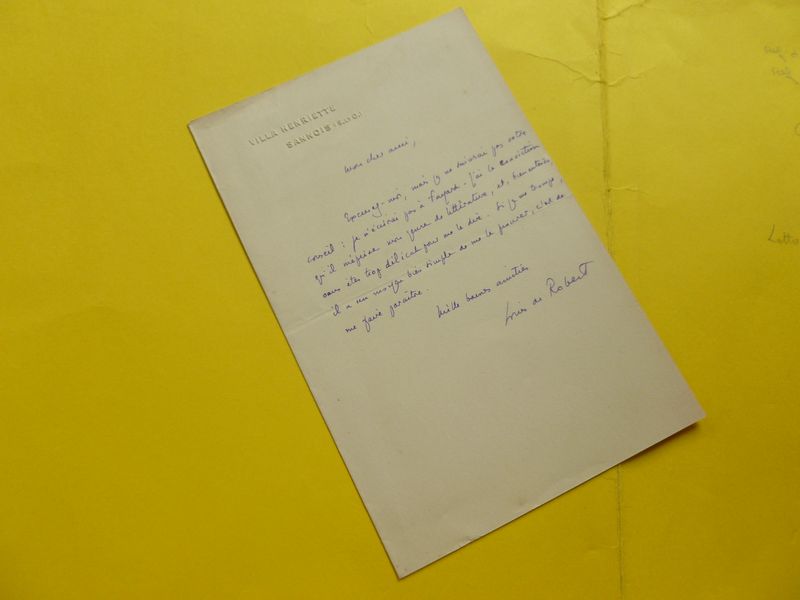 VILLA HENRIETTE
SANNOIS (S.&O.)
Mon cher ami,
Excusez-moi, mais je ne suivrai pas votre
conseil : je n'écrirai pas à Fayard. J'ai la conviction
qu'il méprise mon genre de littérature, et, bien entendu,
vous êtes trop délicat pour me le dire. Si je me trompe,
il a un moyen bien simple de me le prouver, c'est de
me faire paraître.
Mille bonnes amitiés
Louis de Robert